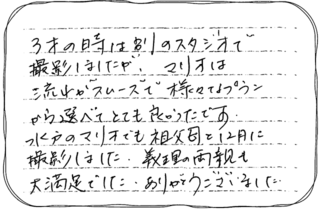 3才の時は別のスタジオで
撮影しましたが、マリオは
流れがスムーズで様々なプラン
から選べてとても良かったです
水戸のマリオでも祖父母と12月に
撮影しました。義理の両親も
大満足でした。ありがとうございました